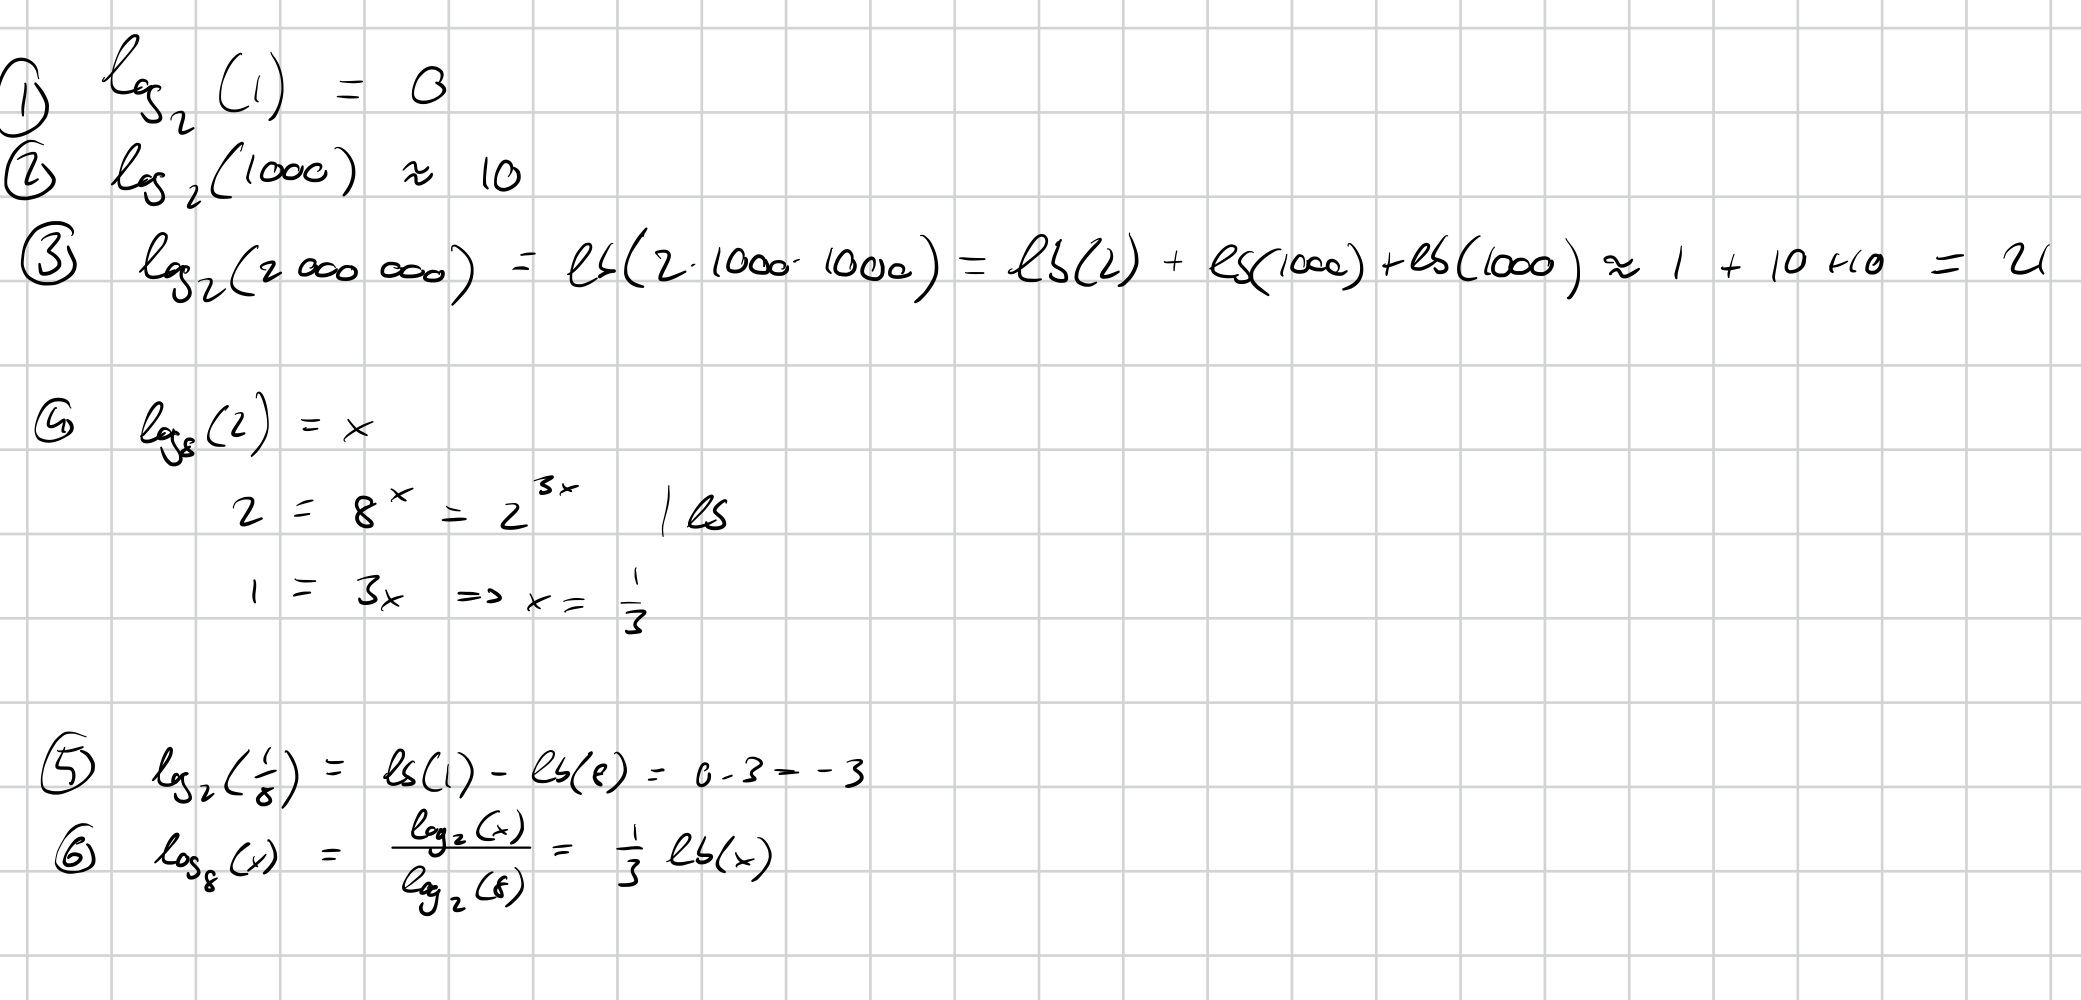 ① log₂(1) = 0
② log₂(1000) ≈ 10
③ log₂(2 000 000) = lb(2·1000·1000) = lb(2) + lb(1000) + lb(1000) ≈ 1 + 10 + 10 = 21
④ log₈(2) = x
2 = 8ˣ = 2³ˣ | lb
1 = 3x => x = 1/3
⑤ log₂(1/8) = lb(1) - lb(8) = 0 - 3 = -3
⑥ log₈(x) = log₂(x)/log₂(8) = 1/3 lb(x)